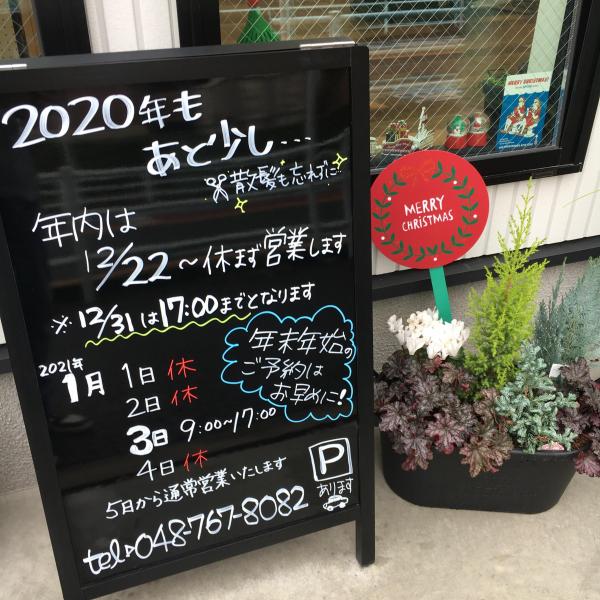 2020年も
あと少し…
散髪も忘れずに…
年内は
12/22～休まず営業します
※12/31は17:00までとなります
2021年
1月 1日 休
2日 休
3日 9:00～17:00
4日 休
5日から通常営業いたします
年末年始の
ご予約は
お早めに!
P
あります
tel▷048-767-8082
MERRY
CHRISTMAS
MERRY CHRISTMAS!